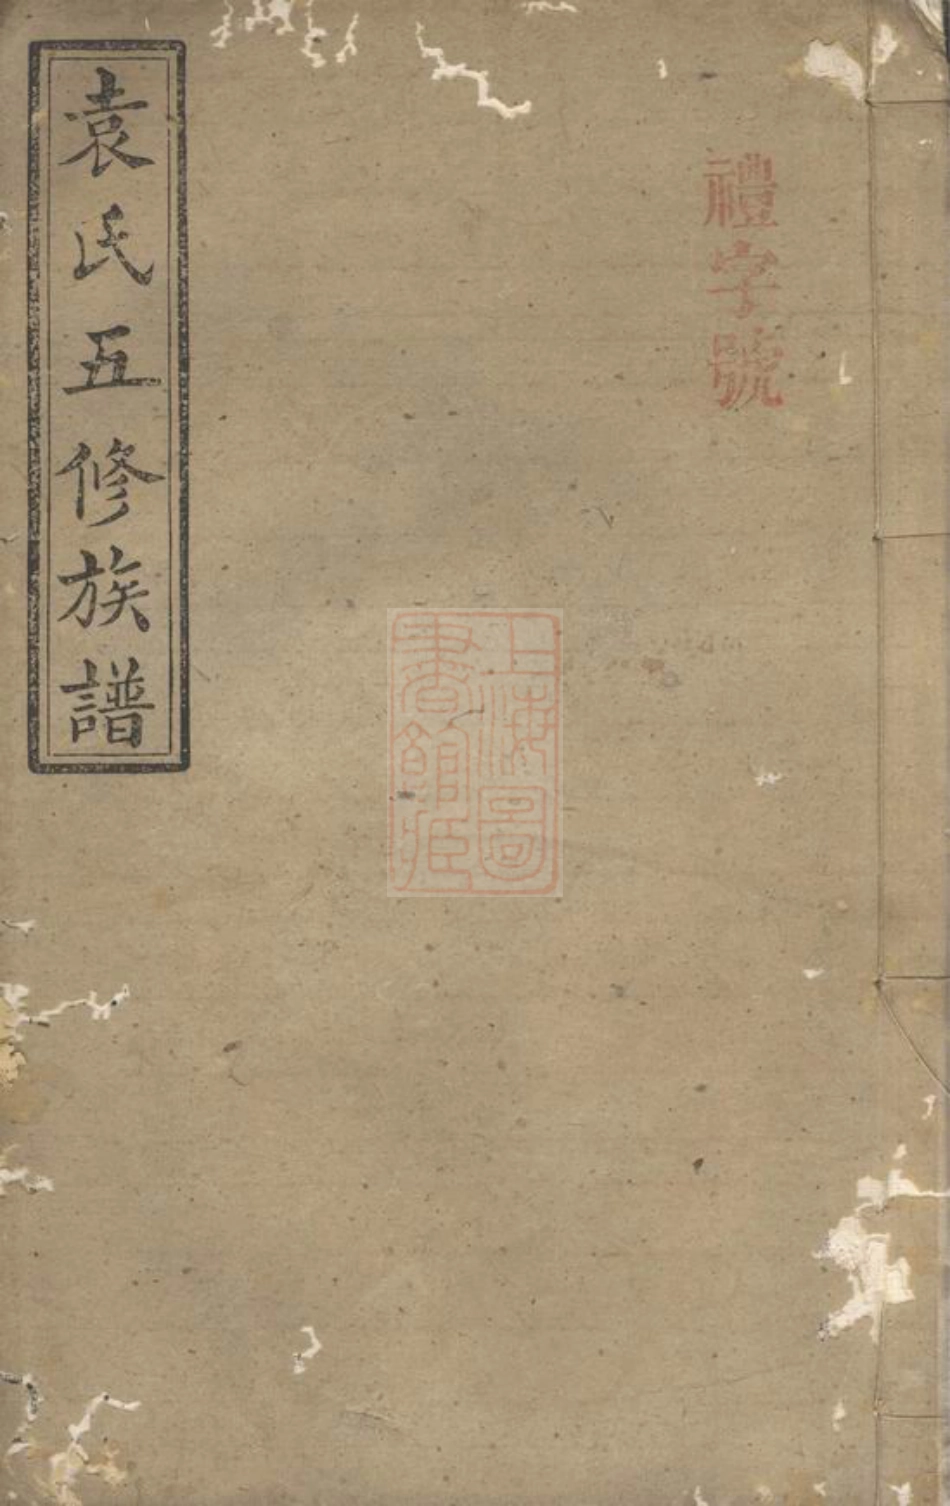 禮字號
上海圖
書館藏
袁氏五修族譜